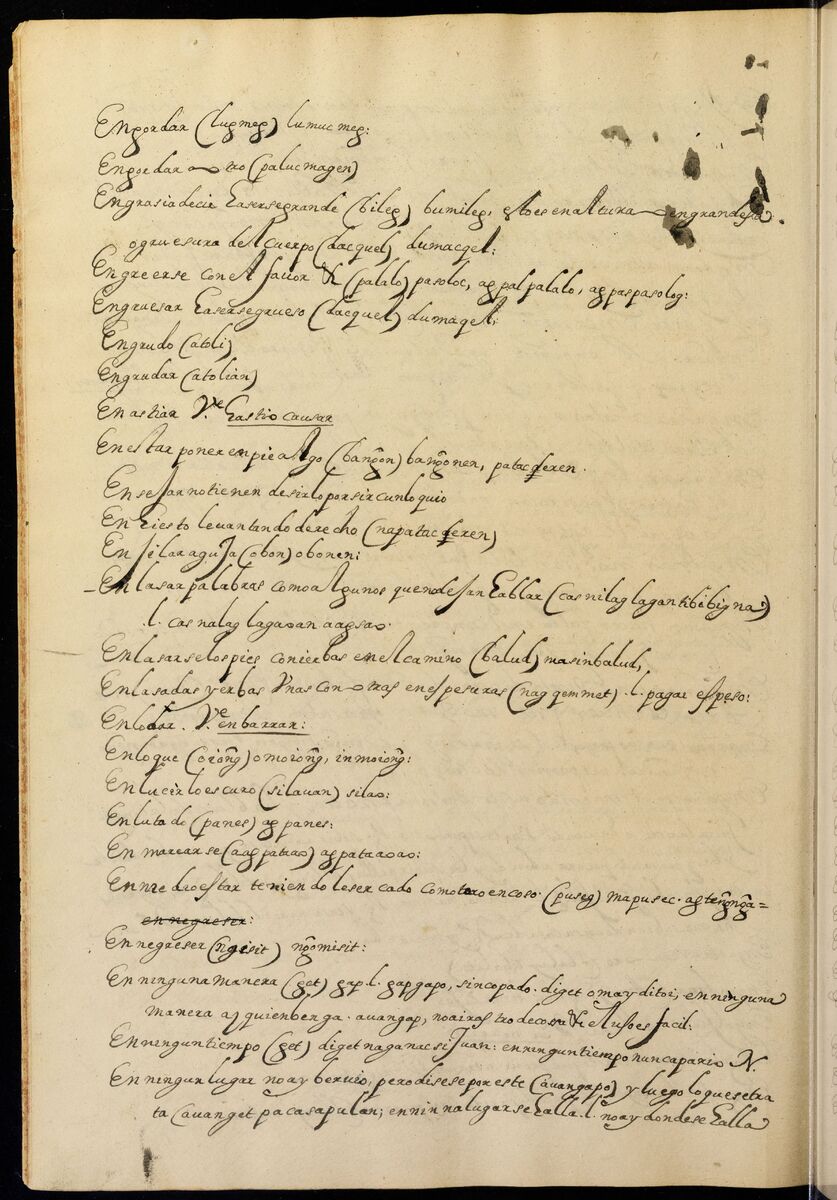 Engordar (lugmeg) lumucmeg:
Engordar otro (palucmagen)
Engrasiadecir hasersegrande (bileg) bumileg, estoes en altura engrandesa.
ogruesura del cuerpo (dacquel) dumacqel:
Engreerse con el favor & (palalo) pasoloc, agpalpalalo, agpaspasolog:
Engruesar hasersegrueso (dacquel) dumaqel;
Engrudo (atoli)
Engrudar (atolian)
En astiar V.e hastio causar
En estar poner en pie algo (bangon) bangonen, patacderen.
Ensesar no tienen desirlo por sircunloquio
En hiesto levantando derecho (napatacderen)
En hilar aguja (obon) obonen:
Enlasar palabras como algunos quendesan hablar (casnilaglagantibibigna)
.l. casnalaglagaoan aagsao.
Enlasarse los pies con ierbas en el camino (balud) masinbalud,
Enlasadas yerbas Vnas con otras en espesuras (nagqemmet) .l. pagar espeso:
Enlodar. V.e enbarrar:
Enloque (oiong) omoiong, inmoiong:
En lucir lo escuro (silauan) silao:
En lutado (panes) agpanes:
En marearse (aagpatao) agpataoao:
En medio estar teniendole sercado como toro en coso. (puseg) mapusec. agtengnga=
en negreser:
En negreser (ngisit) ngomisit:
En ninguna manera (get) gap.l. gapgapo, sincopado. diget omay ditoi, en ninguna
manera aj quien benga. auangap, no ai rastro de cosa & el uso es facil:
En ningun tiempo (get) diget naganac si Juan: en ningun tiempo nunca pario N.
En ningun lugar no ay bervio, pero dise se por este (auangapo) y luego lo que se tra
ta (auanget pacasapulan; en nin na lugar se halla .l. no ay donde se halla